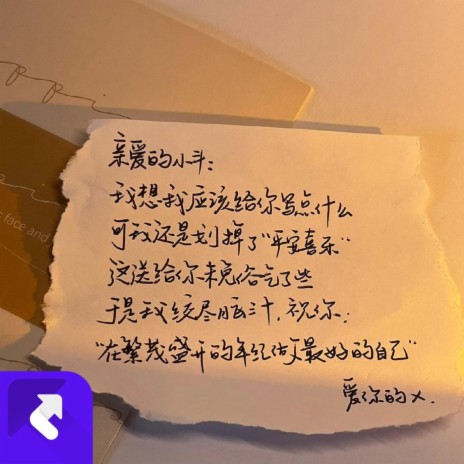 亲爱的小斗：
我想我应该给你写点什么
可我还是划掉了"平安喜乐"
这送给你未免俗气了些
于是我绞尽脑汁，祝你：
"在繁茂盛开的年纪做最好的自己"
爱你的 x.
face and